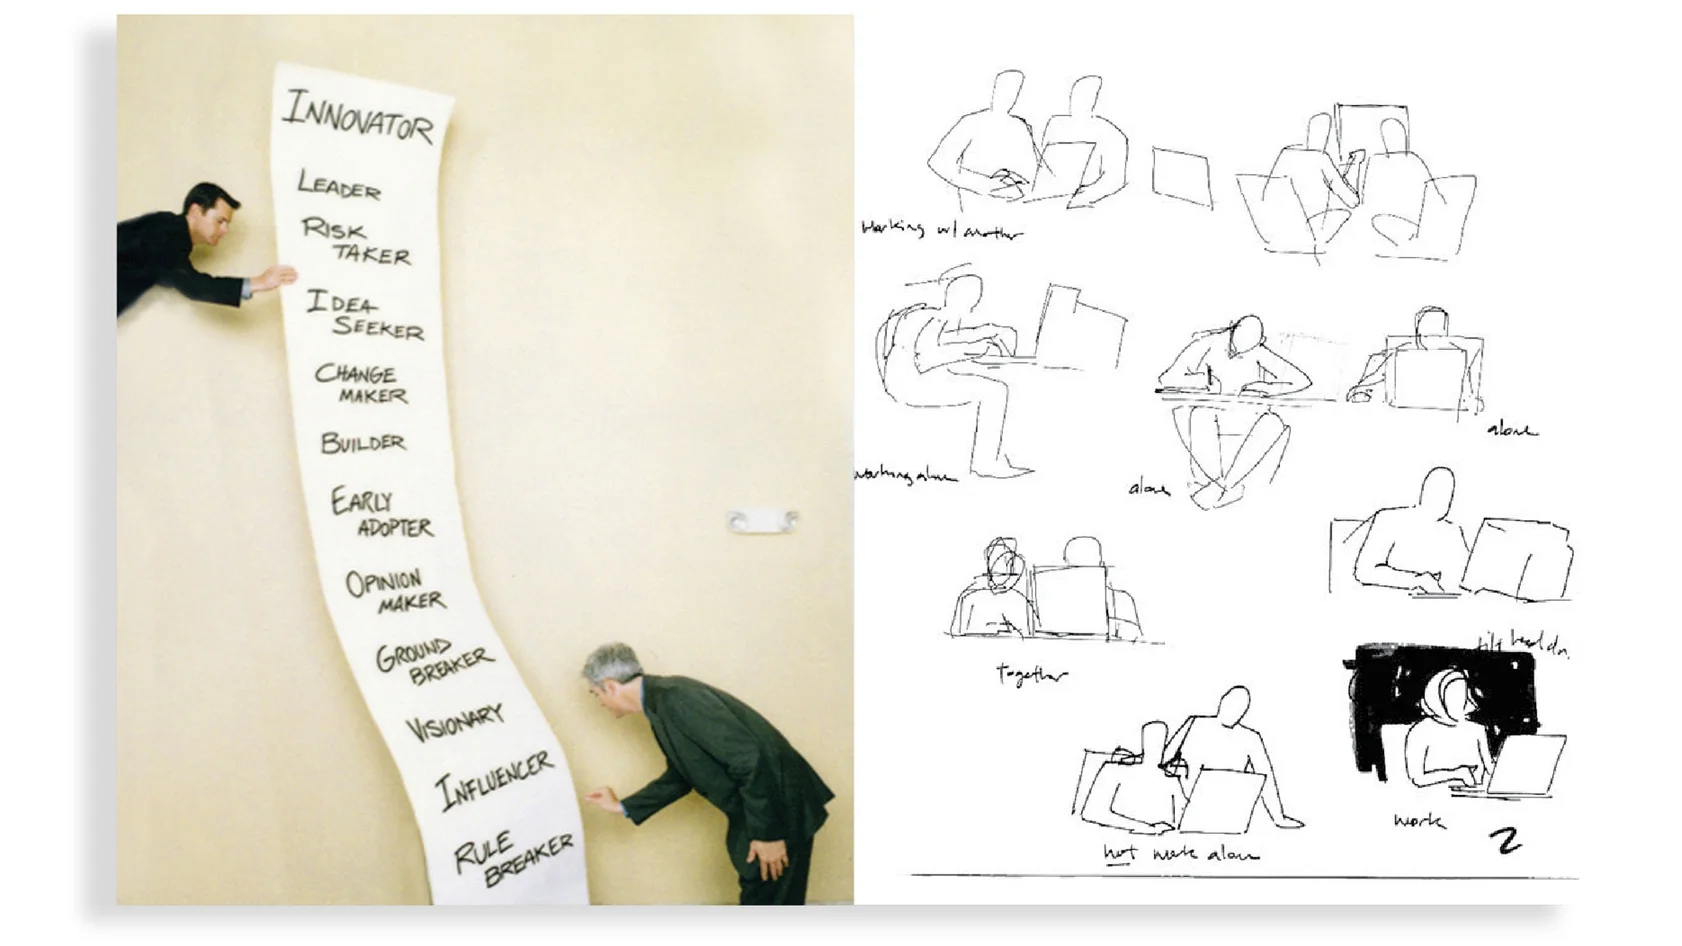 INNOVATOR
LEADER
RISK
TAKER
IDEA
SEEKER
CHANGE
MAKER
BUILDER
EARLY
ADOPTER
OPINION
MAKER
GROUND
BREAKER
VISIONARY
INFLUENCER
RULE
BREAKER
working w/ another
working alone
alone
alone
together
tilt head dn.
work
not work alone
2